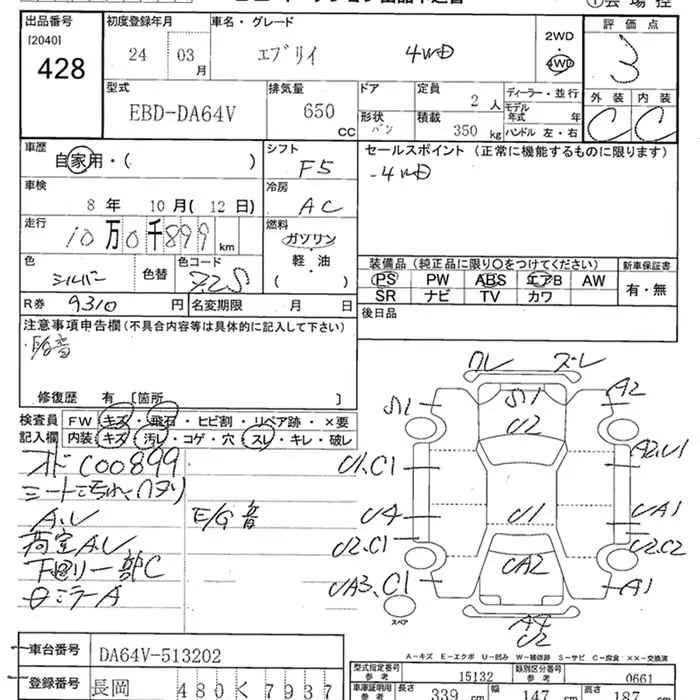 出品番号 初度登録年月 車名・グレード 評価点
[2040] 428 24 03月 エブリイ 4WD 2WD 4WD 3
型式 排気量 ドア 定員 ディーラー・並行 外装 内装
EBD-DA64V 650 CC 形状 バン 2人 積載 350kg モデル年式 年 ハンドル 左・右 C C
車歴 自家用・( ) シフト F5 セールスポイント (正常に機能するものに限ります)
車検 8年 10月(12日) 冷房 AC -4WD
走行 10万0千899km 燃料 ガソリン・軽・油 ( )
色 シルバー 色替 色コード Z2S 装備品(純正品に限り〇をつけてください) 新車保証書
PS PW ABS エアB AW 有・無
SR ナビ TV カワ
R券 9310円 名変期限 月 日 後日品
注意事項申告欄(不具合内容等は具体的に記入して下さい)
・E/G音
修復歴 有 〔箇所 〕
検査員 FW キズ・飛石・ヒビ割・リペア跡・×要
記入欄 内装 キズ・汚レ・コゲ・穴・スレ・キレ・破レ
オド100899
シート汚れ
A.U E/G音
荷室A.U
下回り一部C
ロミラーA
ワレ ズレ
S1 S1 A2
U2
U1.C1 A2.U1
U4 U1 UA1
U2.C1 U2.C2
UA3.C1 UA2 A1
スペア A4
U2
A-キズ E-エクボ U-凹み W-補修跡 S-サビ C-腐食 XX-交換済
車台番号 DA64V-513202
型式指定番号 参考 15132 類別区分番号 参考 0661
登録番号 長岡 480 く 7937 車庫証明用 参考 長さ 339 cm 幅 147 cm 高さ 187 cm